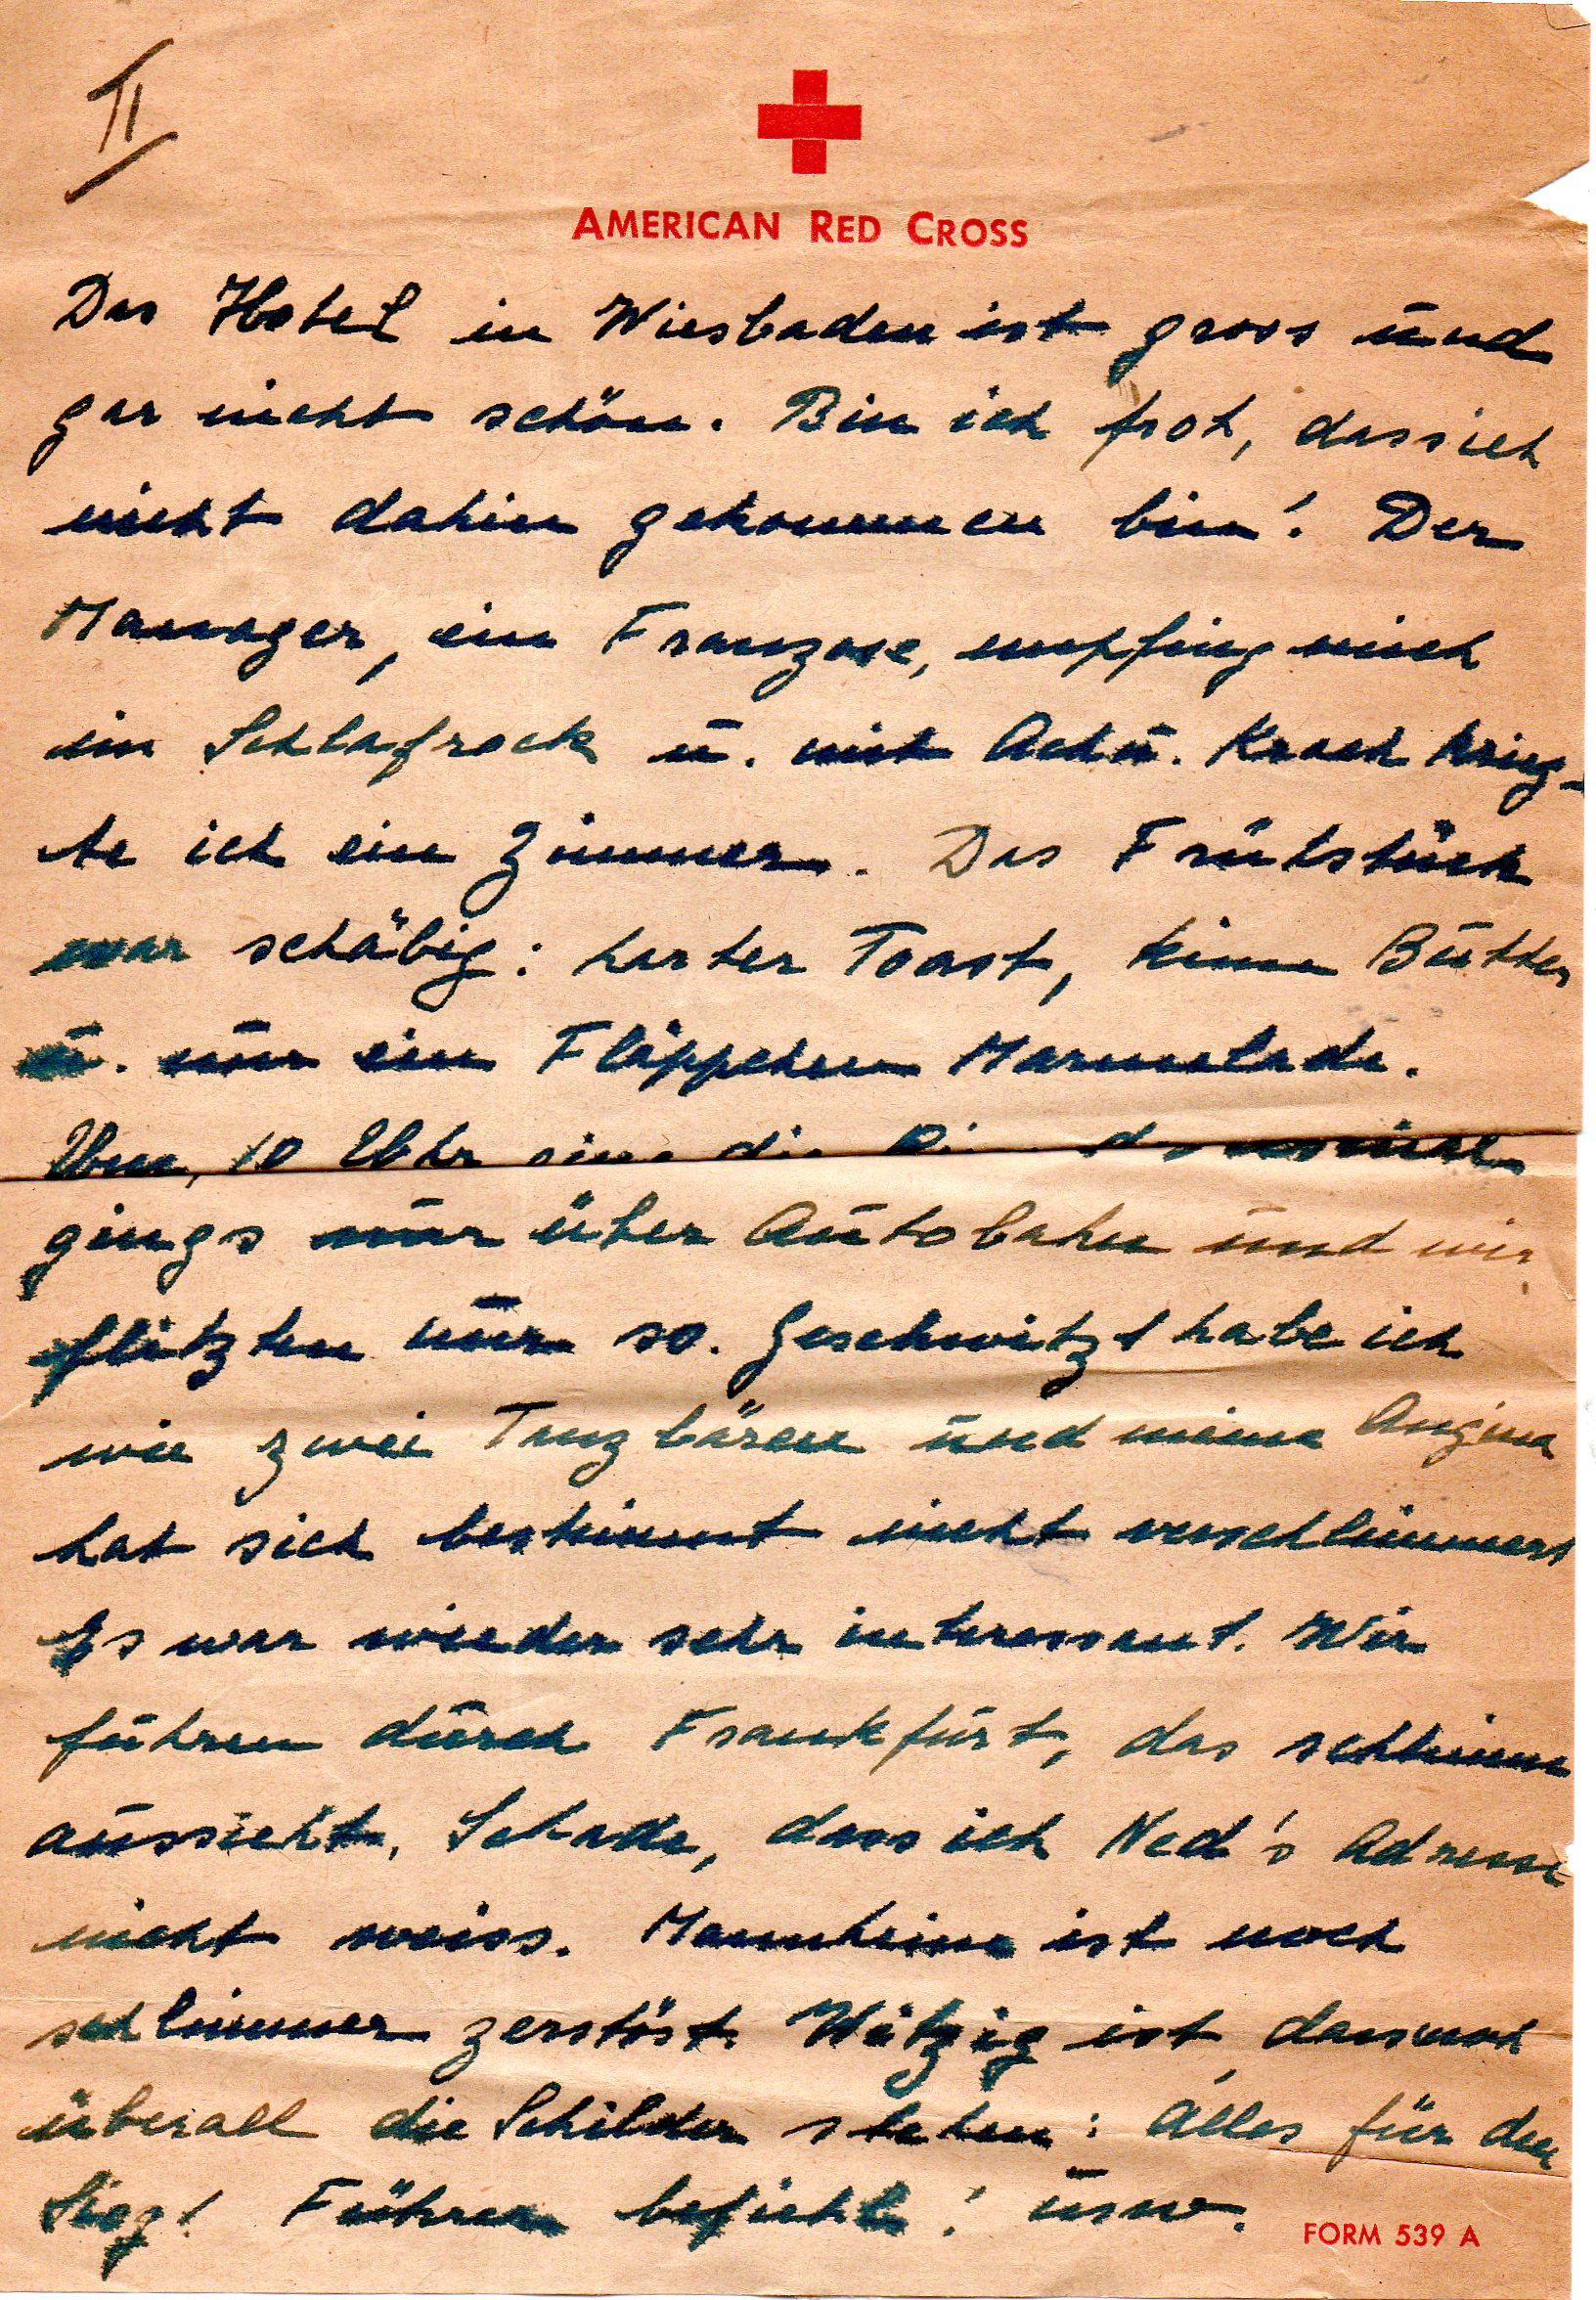 II
AMERICAN RED CROSS
Das Hotel in Wiesbaden ist gross und
gar nicht schön. Bin ich froh, dass ich
nicht dahin gekommen bin! Der
Manager, ein Franzose, empfing mich
im Schlafrock u. mit Ach u. Krach krieg-
te ich ein Zimmer. Das Frühstück
war schäbig: harter Toast, keine Butter
u. nur ein Fläppchen Marmelade.
Um 10 Uhr ging die
gings nur über Autobahn und wir
flitzten nur so. Geschwitzt habe ich
wie zwei Tanzbären und meine Angina
hat sich bestimmt nicht verschlimmert
Es war wieder sehr interessant. Wir
fuhren durch Frankfurt, das schlimm
aussieht. Schade, dass ich Ned's Adresse
nicht weiss. Mannheim ist noch
schlimmer zerstört. Witzig ist, dass noch
überall die Schilder stehen: Alles für den
Sieg! Führer befiehl! usw.
FORM 539 A